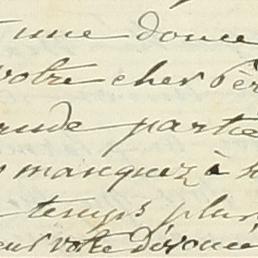 une douce
votre cher Pèr
ande partie
manquez à
temps plus
votre dévouée